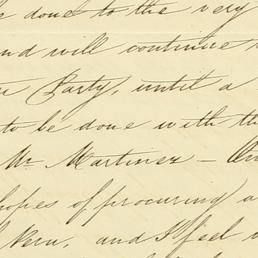 done to the very
and will continue
Party, until a
to be done with the
Mr Martinez —
hopes of procuring a
and I feel